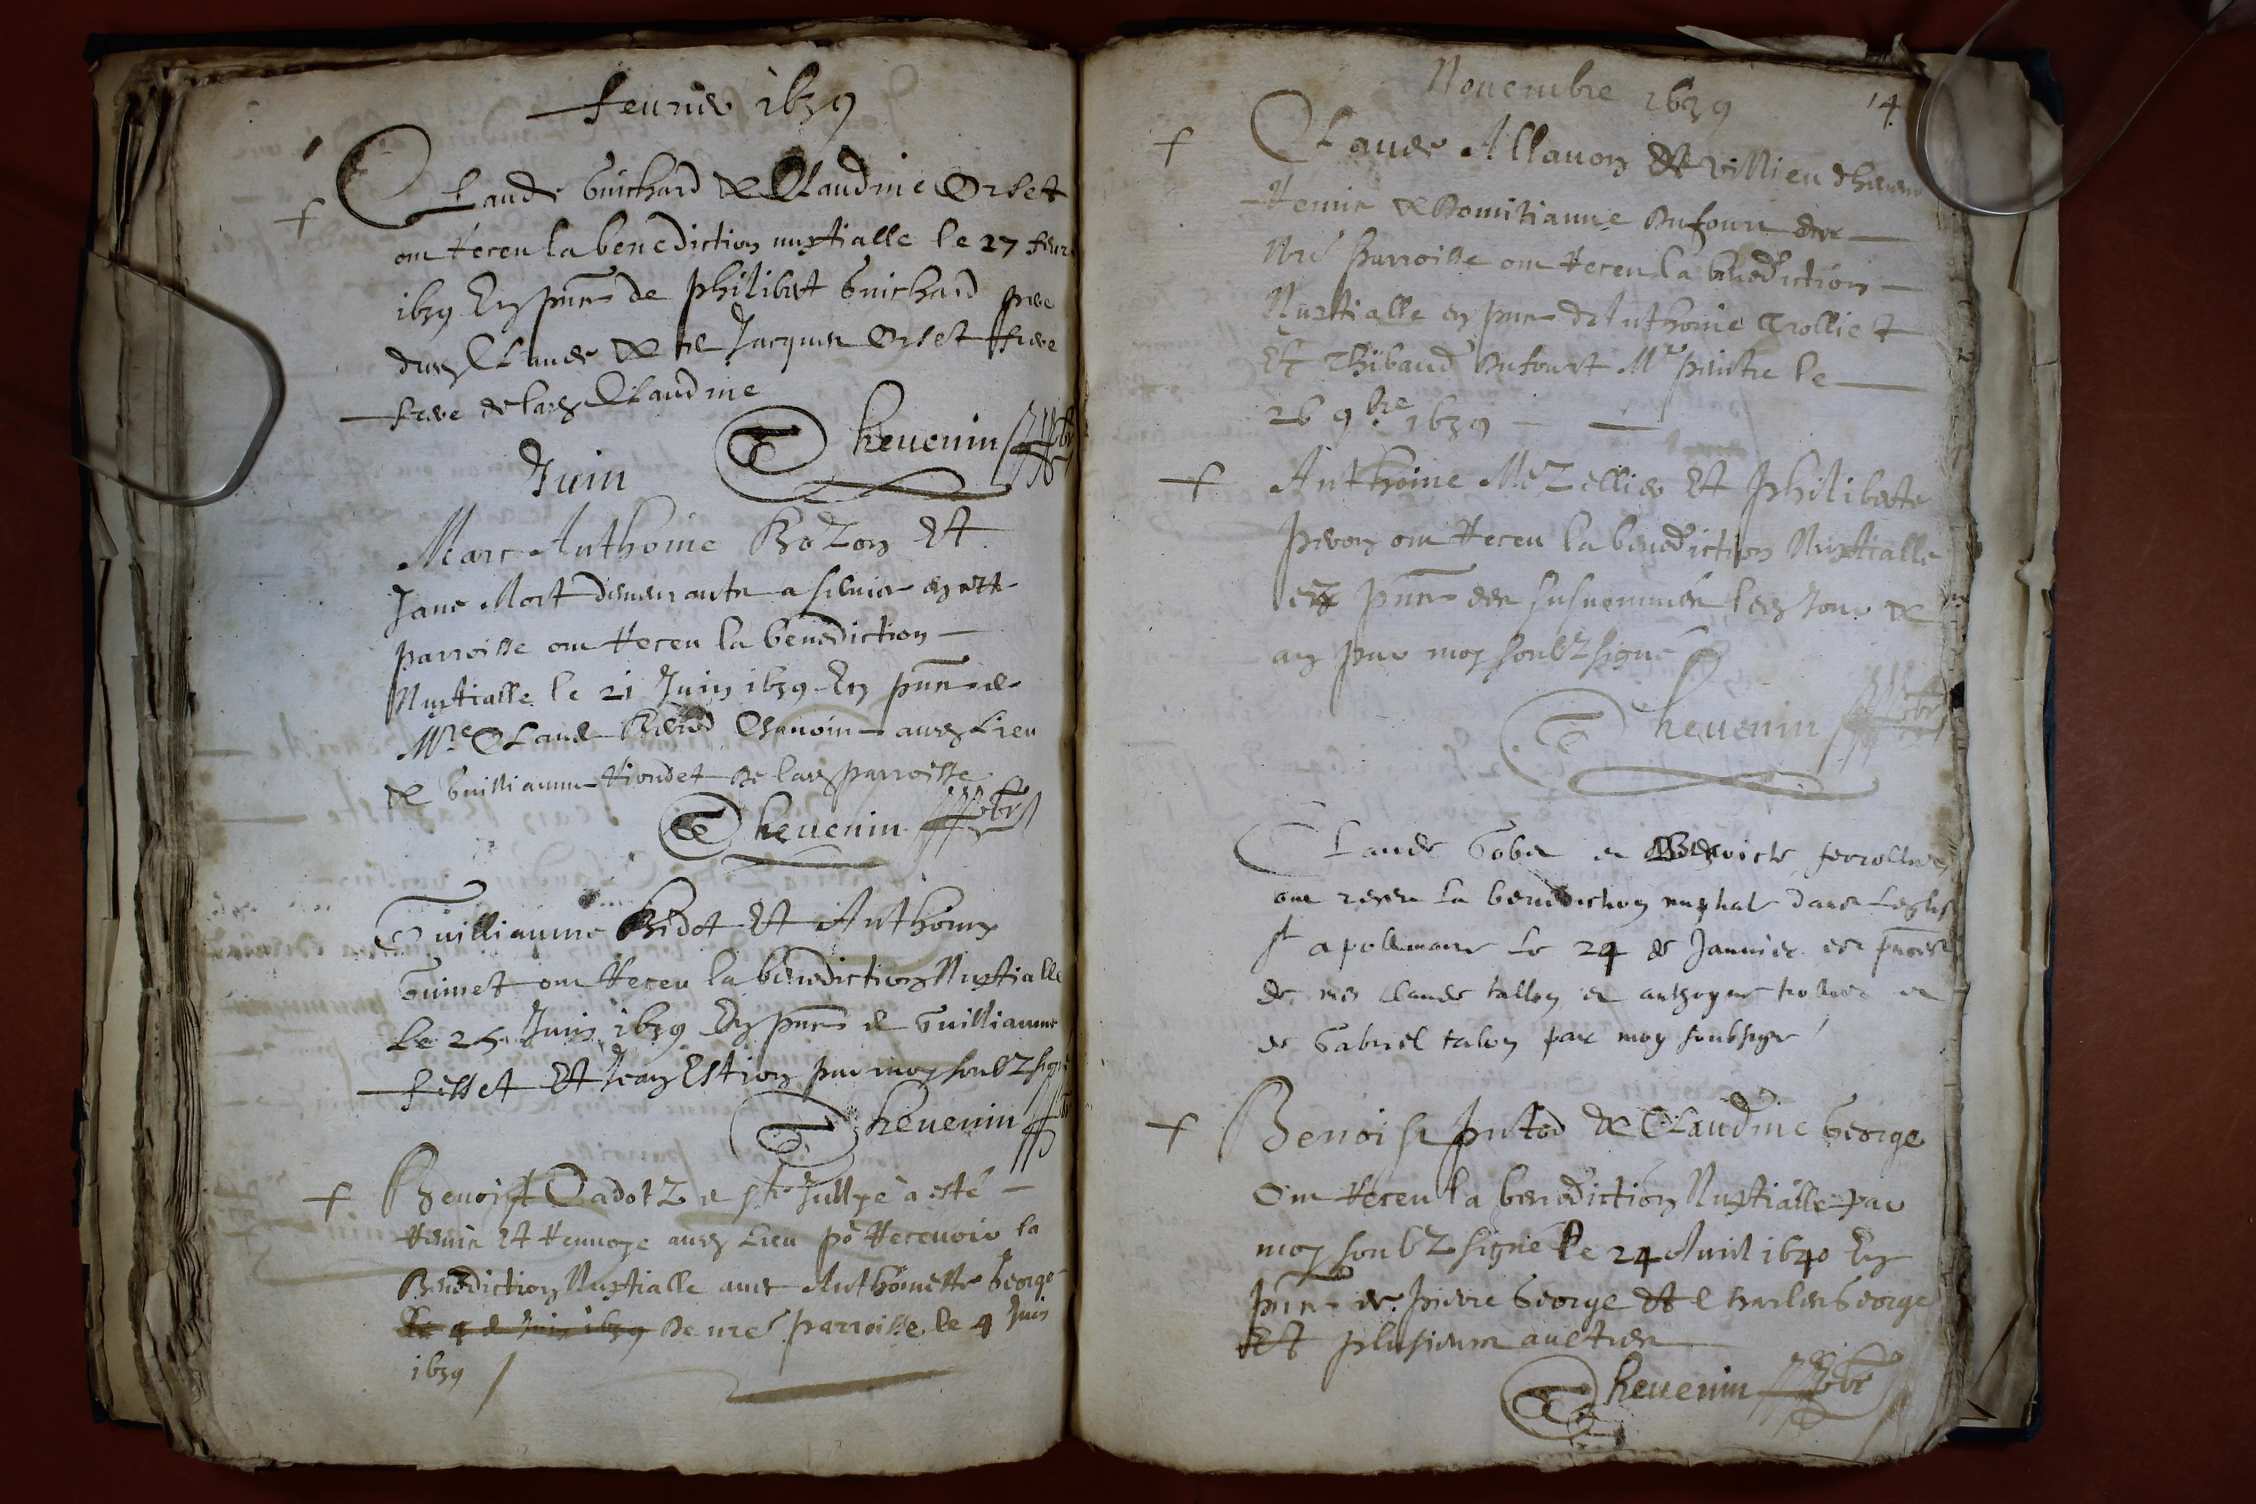 feurier 1639
Claude Guichard & Claudine Orset
ont Receu la benediction nuptialle le 27 feur
1639 En pnce de philibert Guichard pere
dud Claude & de Jacques Orset
frere de lad Claudine
Theuenin pbr
Juin
Marc Anthoine Bozon Et
Jane Mort demeurante a en
parroisse ont Receu la benediction
Nuptialle le 21 Juin 1639 En pnce de
Mre Claude Chanoine aud Lieu
& Guilliaume Riondet de lad parroisse
Theuenin pbr
Guilliaume Bidot Et Anthoina
Guinet ont Receu la benediction Nuptialle
Le 25 Juin 1639 En pnce de Guilliaume
fesset Et Jean Estion par moy soubz signe
Theuenin
Benoist Cadotz de st Jullye a esté
Remis Et Renuoye aud Lieu po Receuoir la
Benediction Nuptialle auec Anthoinette George
Le 4 de Juin 1639 de nre parroisse le 4 Juin
1639
Nouembre 1639
14
Claude Allauon Et
& Domitianne Dufour de
Nre parroisse ont Receu la benediction
Nuptialle en pnce d'Anthoine Trolliet
Et Thibaud Dufourt Mre peintre le
26 9bre 1639
Anthoine Mezellier Et philiberte
peron ont Receu la benediction Nuptialle
en pnce des susnommes lesd Jour &
an par moy soubz signé
Theuenin pbr
Claude Gobet et
ont receu la benediction nuptiale dans Leglise
st apollinaire Le 24 de Januier en presence
de mes Claude tallon et anthoyne trolliet et
de Gabriel talon par moy soubsigné
Benoist putod & Claudine George
Ont Receu la benediction Nuptialle par
moy soubz signé le 24 Auril 1640 En
pnce de pierre George Et Charles George
Et plusieurs aultres
Theuenin pbr